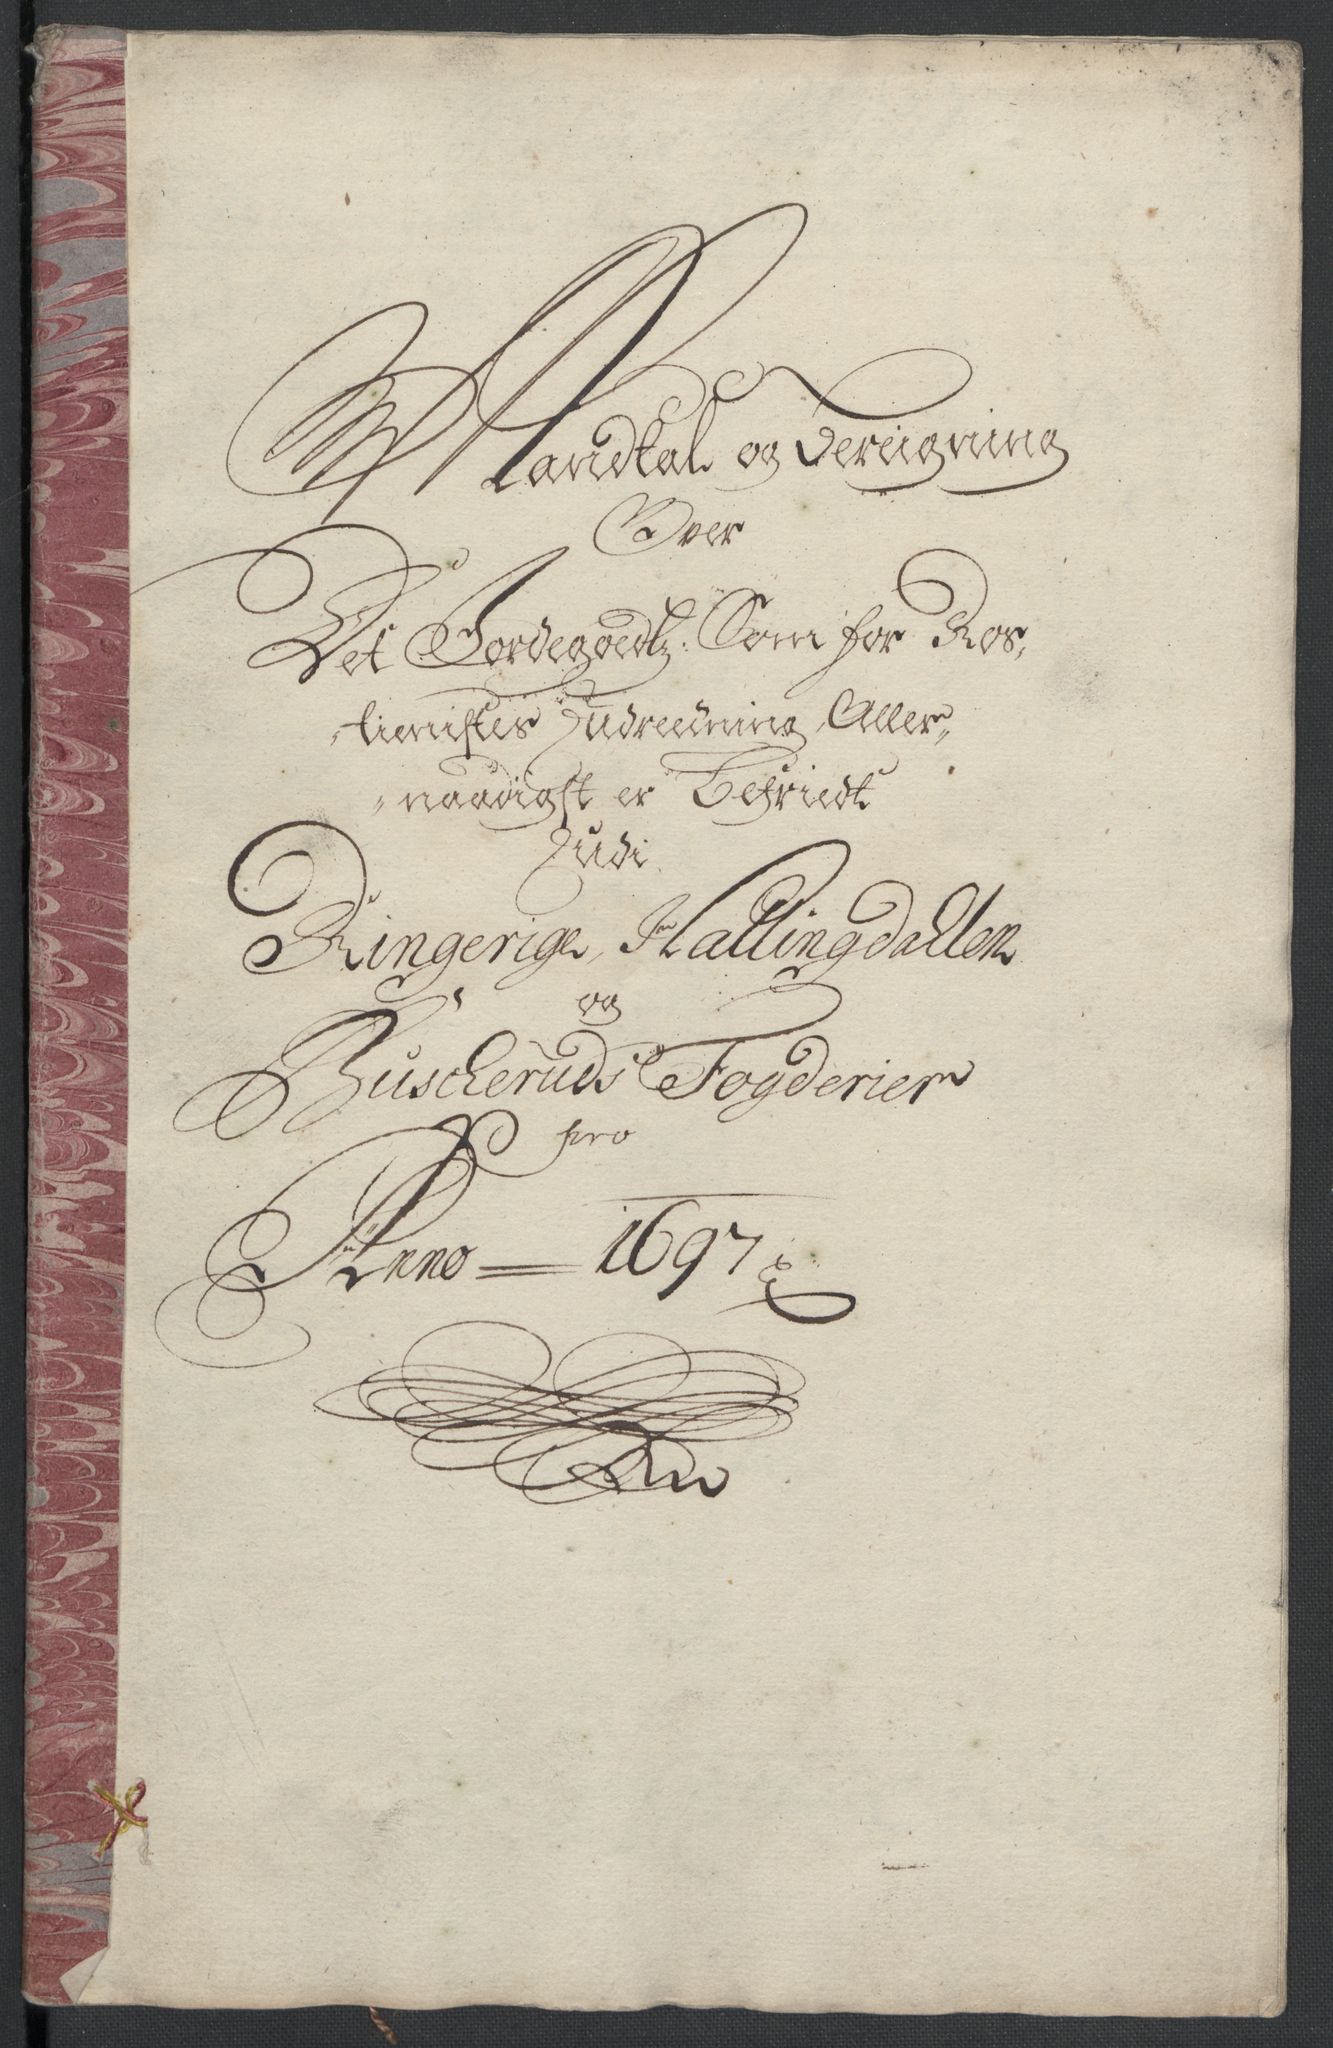 Mandtal og Beregning
Over
Det Jordegoedtz Som for Ros,
,,tienistes Udreedning Aller,,
,,naadigst er Befriedt
Udi
Ringerige, Hallingdallen
og
Buscheruds Fogderier
pro
Anno = 1697